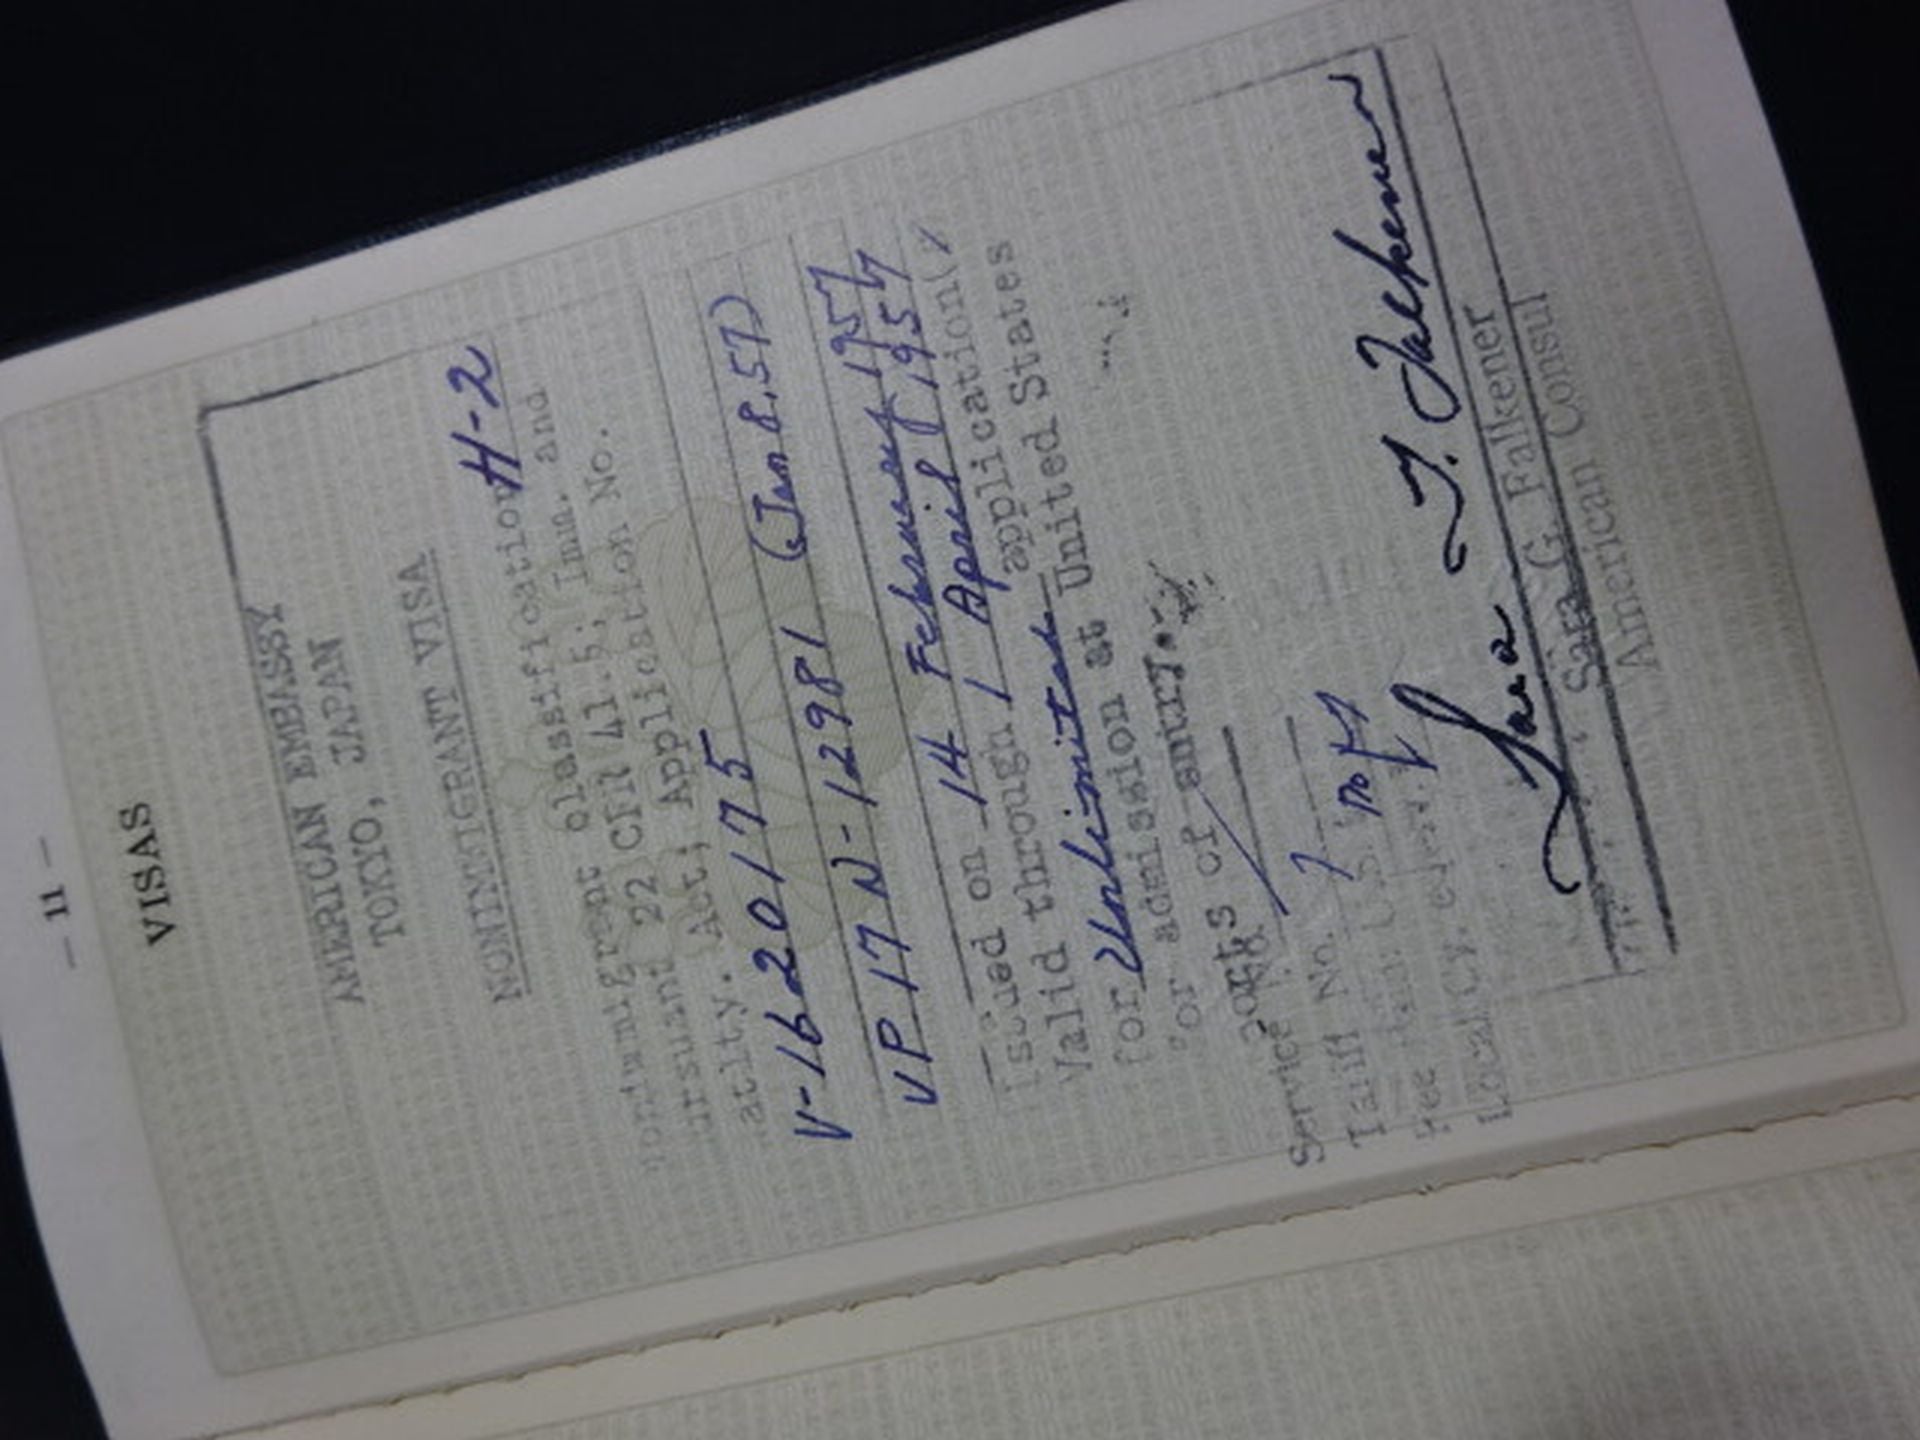 — 11 —
VISAS
AMERICAN EMBASSY
TOKYO, JAPAN
NONIMMIGRANT VISA
Nonimmigrant classification H-2
pursuant 22 CFR 41.5; Imm. and
Natlty. Act; Application No.
V-1620175 (Jan 8, 57)
VP 17 N-12981
Issued on 14 February 1957
Valid through 1 April 1957
for Unlimited application(s)
for admission at United States
ports of entry.
Service No. 7
Tariff No.
Fee
Local Cy.
Sara G. Falkener
American Consul